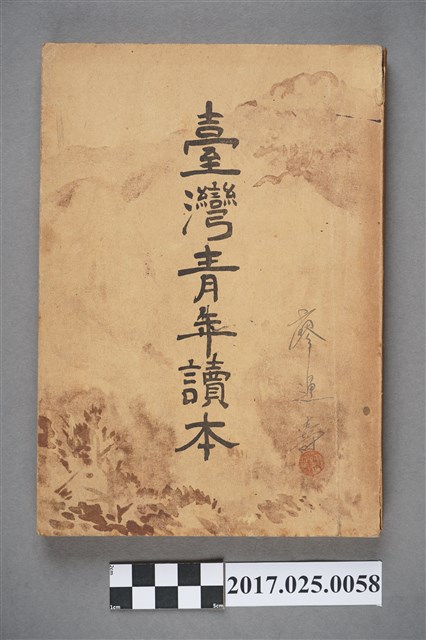 臺灣青年讀本
廖連壽
1cm
5cm
2017.025.0058